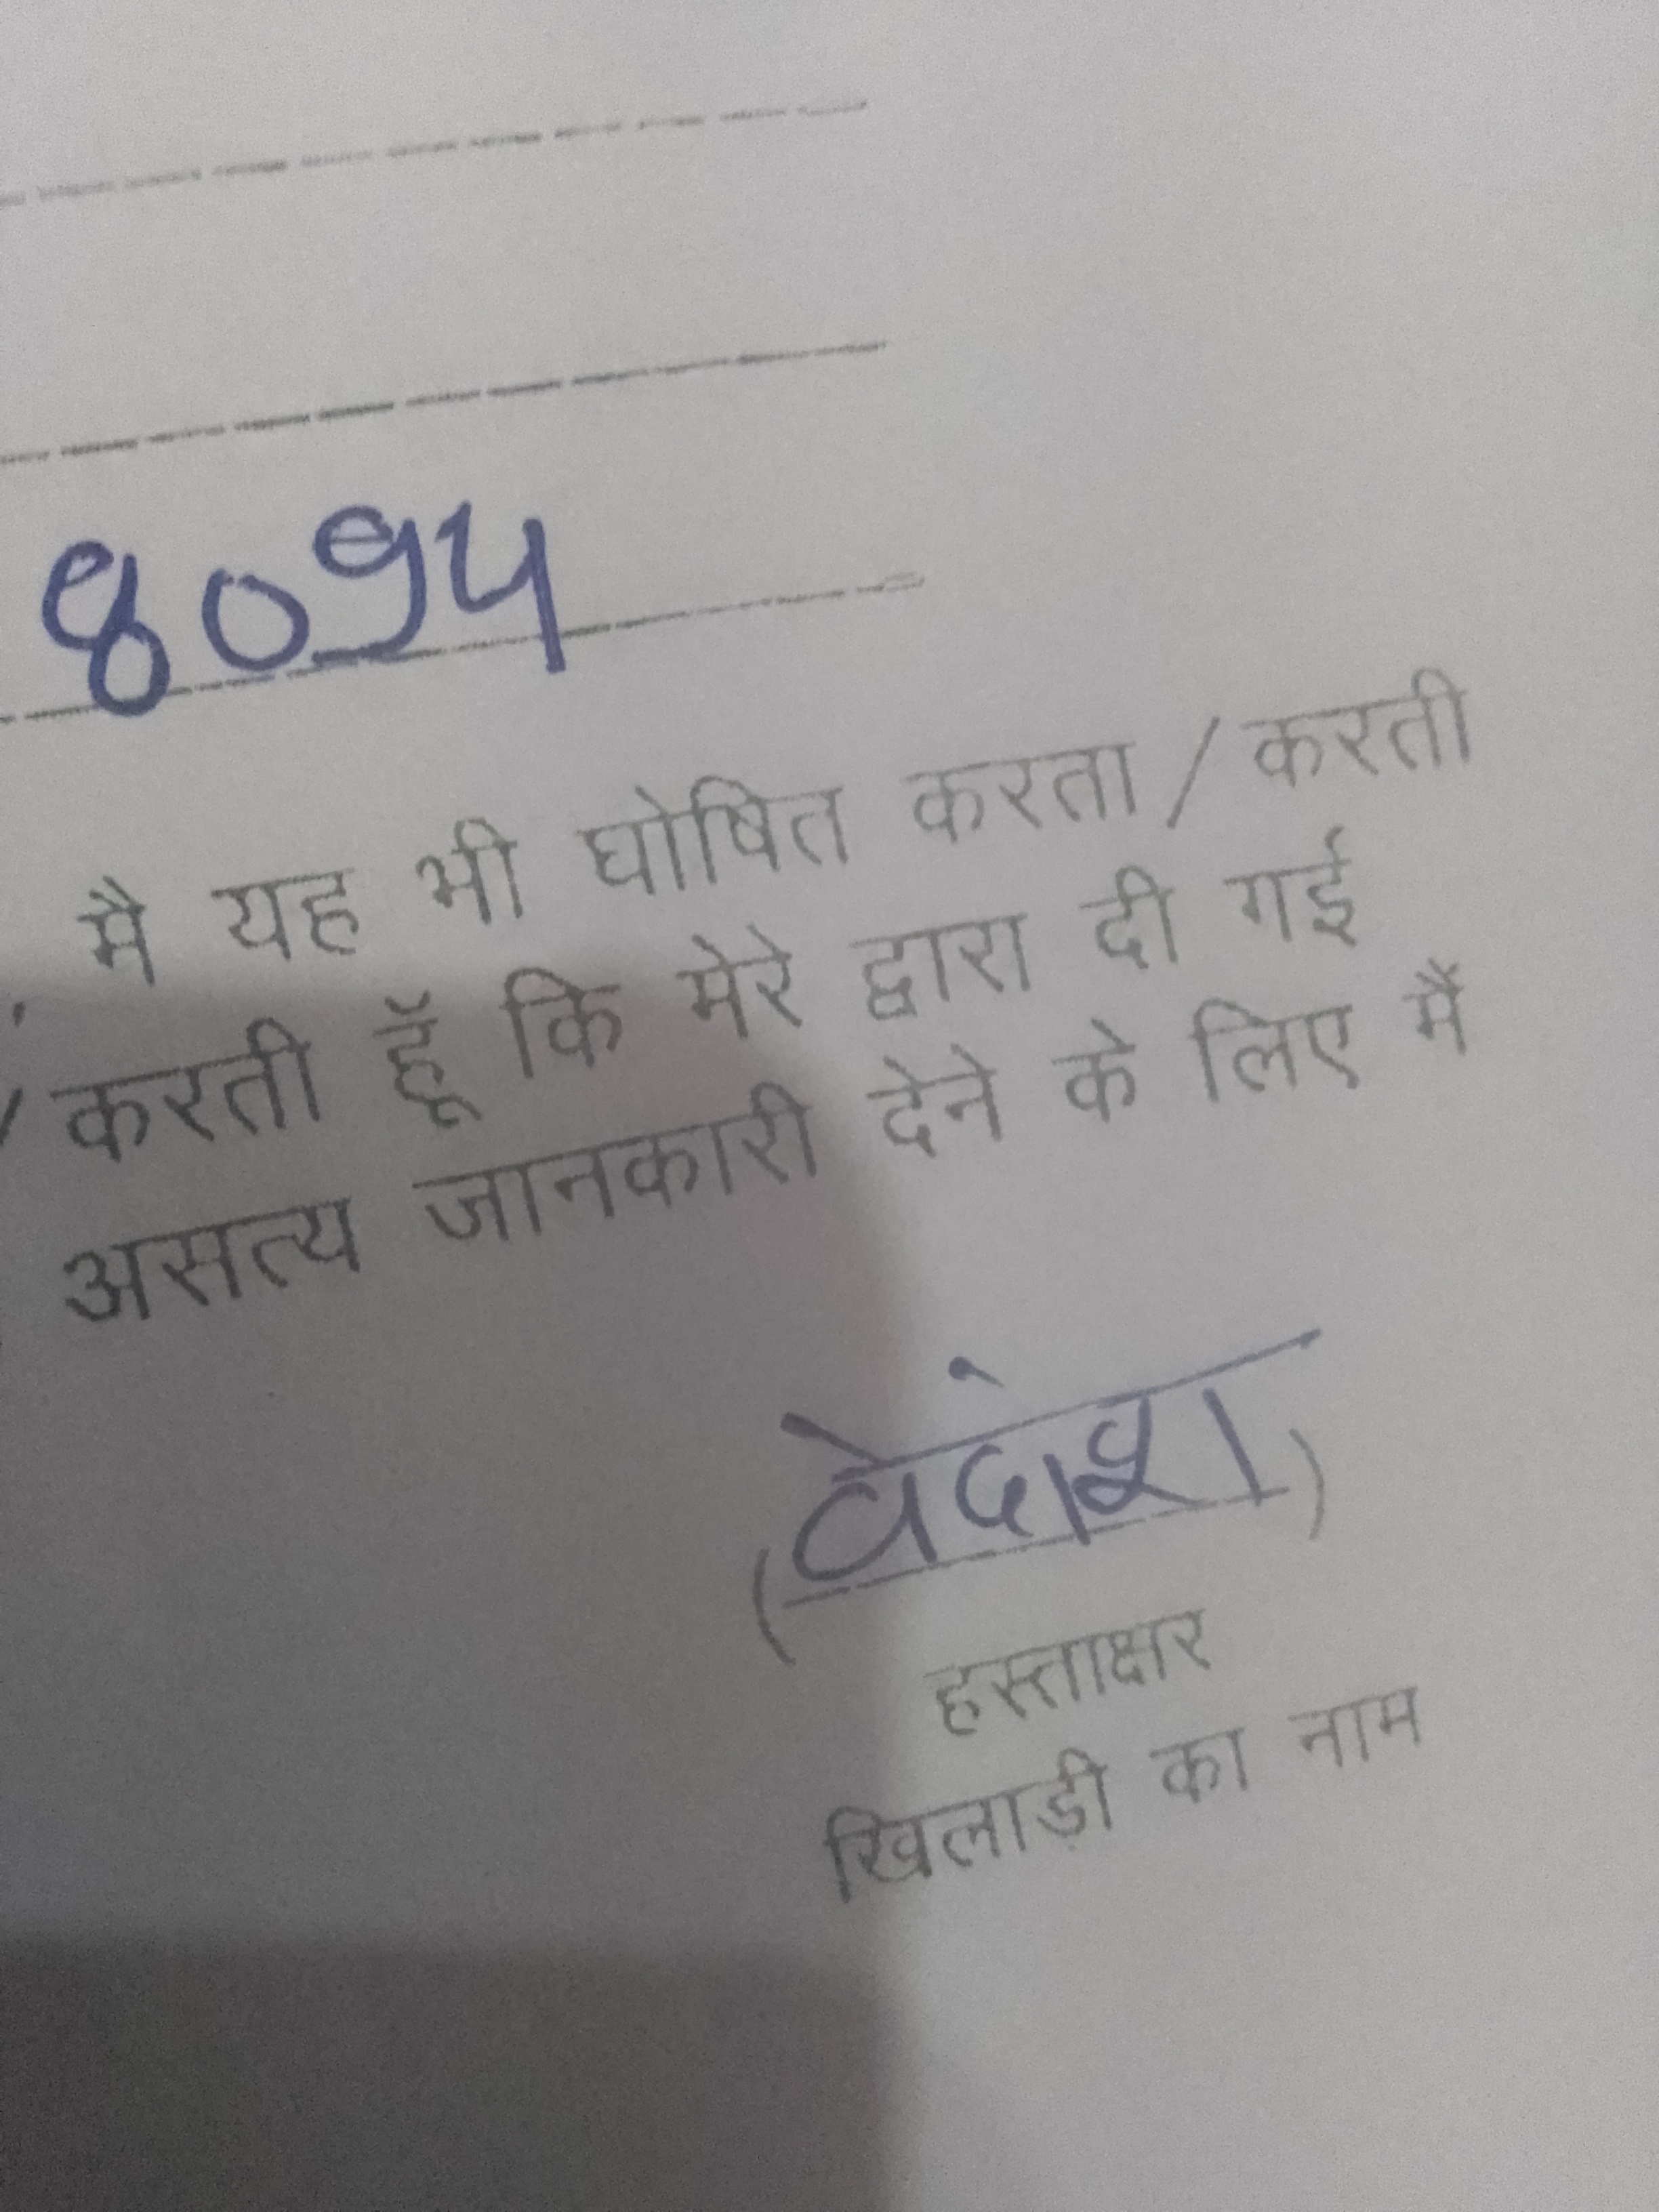 8094
मै यह भी घोषित करता / करती
/ करती हूॅ कि मेरे द्वारा दी गई
असत्य जानकारी देने के लिए मैं
( )
हस्ताक्षर
खिलाड़ी का नाम